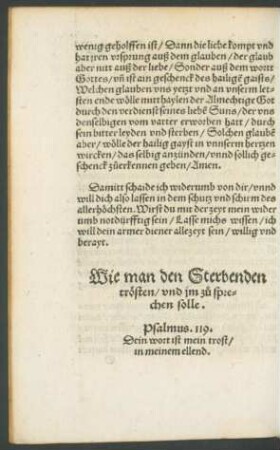 wenig geholffen ist / Dann die liebe kompt vnd
hat jren vrsprung auß dem glauben / der glaub
aber nit auß der liebe / Sonder auß dem wort
Gottes / vñ ist ain geschenck des hailigē gaists /
Welchen glauben vns yetzt vnd an vnserm letz-
ten ende wölle mitthaylen der Almechtige Got
durch den verdienst seines liebē Suns / der vns
denselbigen vom vatter erworben hatt / durch
sein bitter leyden vnd sterben / Solchen glaubē
aber / wölle der hailig gayst in vnnserm hertzen
wircken / das selbig anzünden / vnnd söllich ge-
schenck zůerkennen geben / Amen.
Damitt schaide ich widerumb von dir / vnnd
will dich also lassen in dem schutz vnd schirm des
allerhöchsten. Wirst du mit der zeyt mein wider
umb notdürfftig sein / Lasse michs wissen / ich
will dein armer diener allezeyt sein / willig vnd
berayt.
Wie man den Sterbenden
trösten / vnd jm zů spre-
chen solle.
Psalmus. 119.
Dein wort ist mein trost /
in meinem ellend.